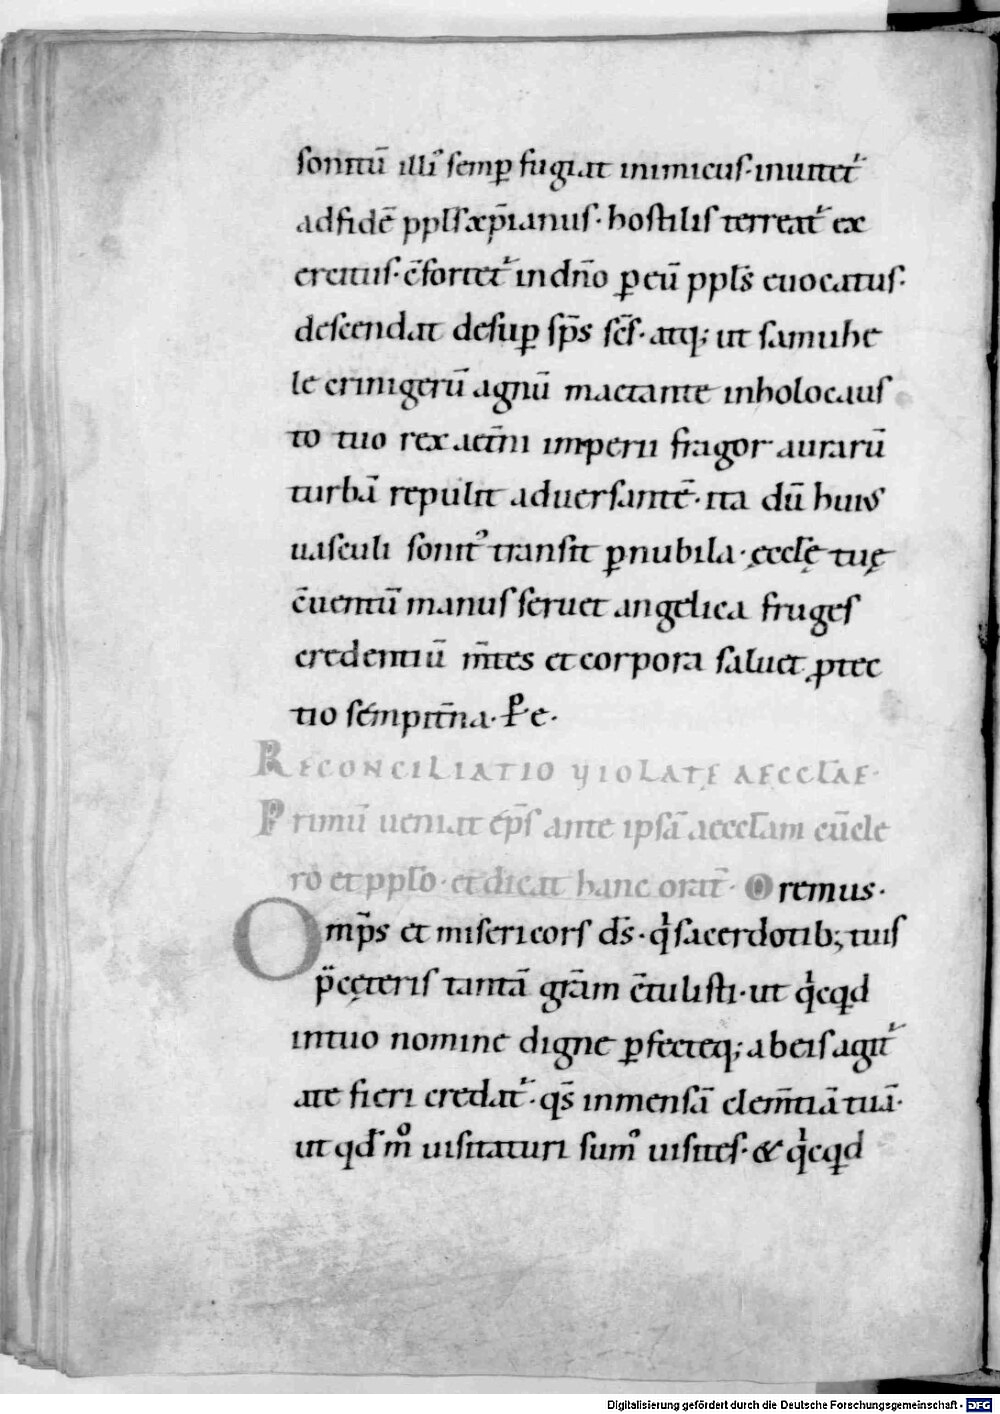 sonitū illiᵒ semꝑ fugiat inimicus· inuitet᷑
adfidē ppl̄s xp̄ianus· hostilis terreat᷑ ex
ercitus· c̄fortet᷑ in dn̄o ꝑ eū ppl̄s euocatus·
descendat desuꝑ sp̄s sc̄s· atq; ut samuhe
le crinigerū agnū mactante inholocaus
to tuo rex aet̄ni imperii fragor aurarū
turbā repulit aduersantē· ita dū huiꝰ
uasculi sonitꝰ transit ꝑ nubila· ęccl̄ę tuę
c̄uentū manus seruet angelica fruges
credentiū m̄tes et corpora saluet ꝓtec
tio sempit̄na· P̲ e·
RECONCILIATIO VIOLATĘ AECCL̄AE·
Primū ueniat ep̄s ante ipsā aeccl̄am cū cle
ro et ppl̄o· et dicat hanc orat̄· Oremus·
Omp̄s et misericors ds̄· qͥ sacerdotib; tuis
p̄ cęteris tantā gr̄am c̄tulisti· ut qͥcqͥd
intuo nomine digne ꝑfecteq; ab eis agit᷑
ate fieri credat᷑· qs̄ inmensā clem̄tiā tuā·
ut qd̄ mͦ uisitaturi sumꝰ uisites· & qͥcqͥd
Digitalisierung gefördert durch die Deutsche Forschungsgemeinschaft - DFG